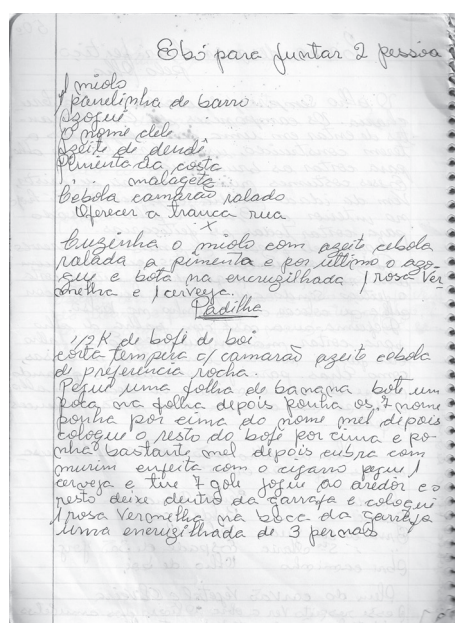 Ebó para juntar 2 pessoa
1 miolo
1 panelinha de barro
Azogue
O nome dele
Azeite de dendê
Pimenta da costa
" malageta
Cebola camarão ralado
Oferecer a tranca rua
x
Cuzinha o miolo com azeite cebola
ralada a pimenta e por ultimo o azo-
gue e bota na encruzilhada 1 rosa ver-
melha e 1 cerveja.
Padilha
1/2 K de bofe de boi
corta tempera c/ camarão azeite cebola
de preferencia rocha.
Pegue uma folha de banana bote um
poco na folha depois ponha os 7 nome
ponha por cima do nome mel depois
coloque o resto do bofe por cima e po-
nha bastante mel depois cubra com
murim enfeita com o cigarro pegue 1
cerveja e tire 7 gole jogue ao aredor e o
resto deixe dentro da garrafa e coloque
1 rosa vermelha na boca da garrafa
uma encruzilhada de 3 pernas